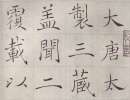 大唐太
製三藏
盖聞二
覆載以